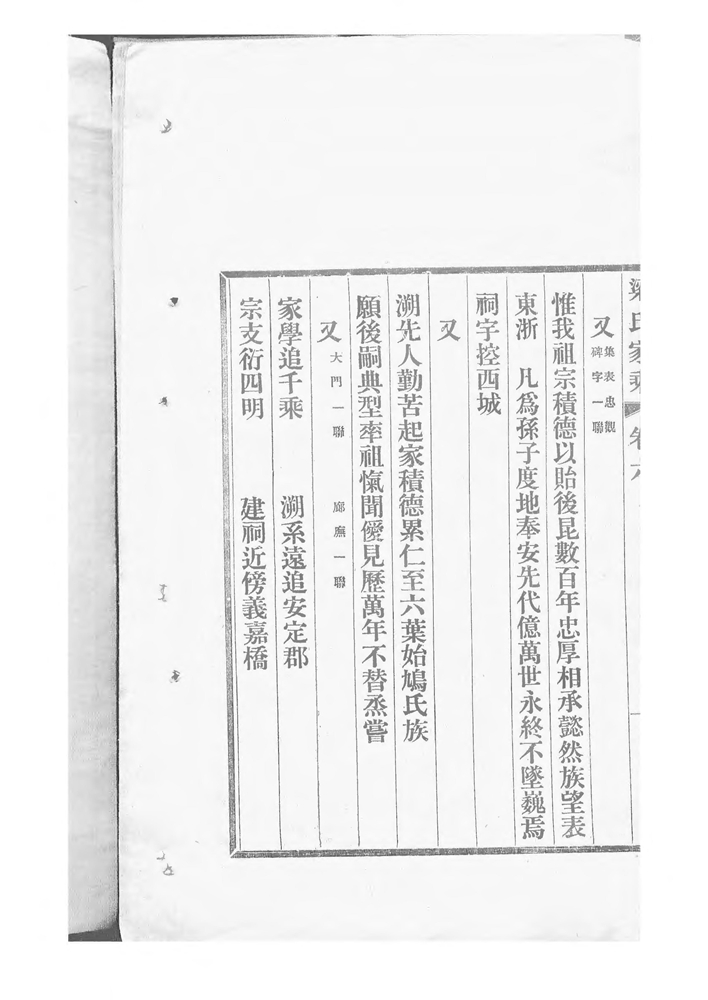 梁氏家乘 卷六
又 集表忠觀碑字一聯
惟我祖宗積德以貽後昆數百年忠厚相承懿然族望表
東浙　凡為孫子度地奉安先代億萬世永終不墜巍焉
祠宇控西城
又
溯先人勤苦起家積德累仁至六葉始鳩氏族
願後嗣典型率祖愾聞僾見歷萬年不替烝嘗
又 大門一聯　廊廡一聯
家學追千乘　溯系遠追安定郡
宗支衍四明　建祠近傍義嘉橋